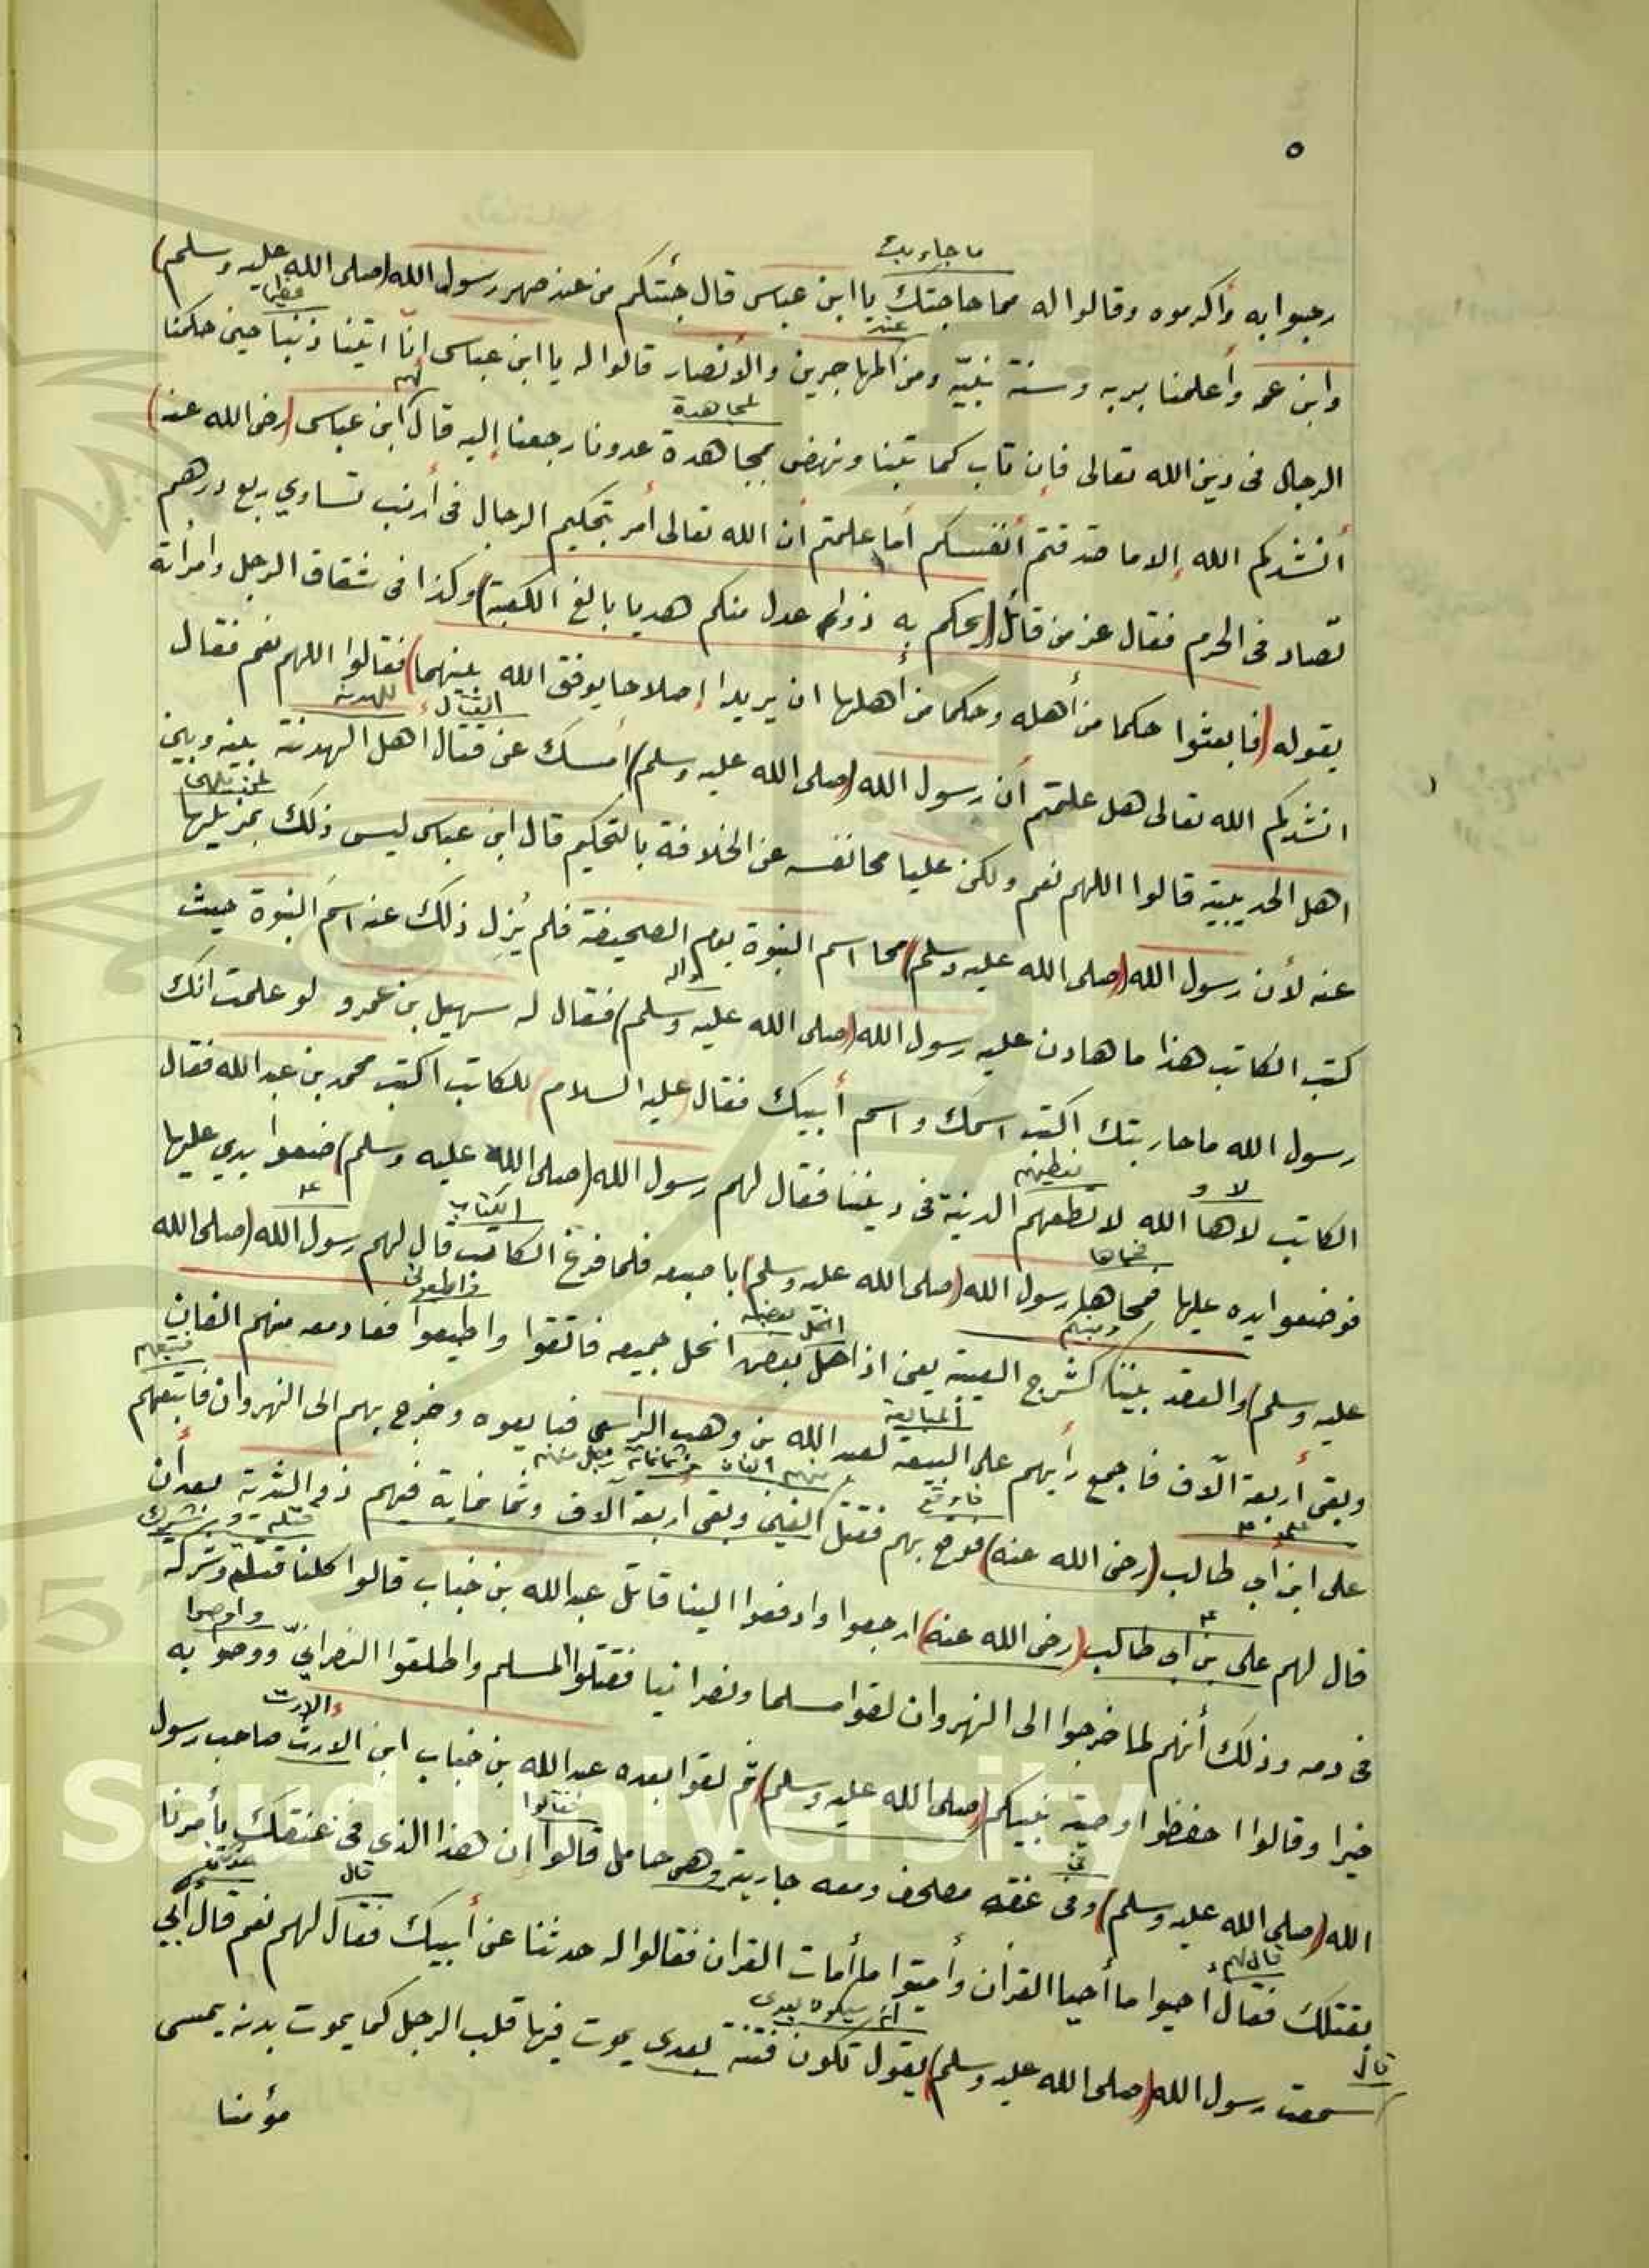 ٥
ما جاء بك
رحبوا به وأكرموه وقالوا له مما حاجتك يا ابن عباس قال جئتكم من عند صهر رسول الله (صلى الله عليه وسلم)
عند عظيما
وابن عمه وأعلمنا بربه وسنة نبيّه ومن المهاجرين والأنصار قالوا له يا ابن عباس انّا اتينا ذنبا حين حكمنا
لمجاهدة لهم
الرجال فى دين الله تعالى فإن تاب كما تبنا ونهض بمجاهدة عدونا رجعنا إليه قال ابن عباس (رضى الله عنه)
أنشدكم الله إلا ما صدقتم أنفسكم أما علمتم أن الله تعالى أمر بتحكيم الرجال فى أرنب تساوي ربع درهم
تصاد فى الحرم فقال عز من قائل (يحكم به ذوا عدل منكم هديا بالغ الكعبة) وكذا فى شقاق الرجل وامرأته
بقوله (فابعثوا حكما من أهله وحكما من أهلها ان يريدا إصلاحا يوفق الله بينهما) فقالوا اللهم نعم فقال
القتال للهدنة
انشدكم الله تعالى هل علمتم أن رسول الله (صلى الله عليه وسلم) أمسك عن قتال أهل الهدنة بينه وبين
اهل الحديبية قالوا اللهم نعم ولكن عليا محا نفسه عن الخلافة بالتحكيم قال ابن عباس ليس ذلك بمزيلها
عنه لأن رسول الله (صلى الله عليه وسلم) محا اسم النبوة يوم الصحيفة فلم يُزِل ذلك عنه اسمَ النبوة حيث
واله
كتب الكاتب هذا ما هادن عليه رسول الله (صلى الله عليه وسلم) فقال له سهيل بن عمرو لو علمت انك
رسول الله ما حاربتك اكتب اسمك واسم أبيك فقال (عليه السلام) للكاتب اكتب محمد بن عبد الله فقال
لا و نعطيهم
الكاتب لاها الله لا نطعهم الدنية فى ديننا فقال لهم رسول الله (صلى الله عليه وسلم) ضعوا يدي عليها
فمحاها الكتاب
فوضعوا يده عليها فمحاها رسول الله (صلى الله عليه وسلم) باصبعه فلما فرغ الكاتب قال لهم رسول الله (صلى الله
وبينكم انحل بعضه واطيعونى
عليه وسلم) والعقد بيننا كشرج العيبة يعنى اذا حل بعض انحل جميعه فاتقوا واطيعوا فعاد معه منهم الفان
المبايعة فتبعهم
وبقى أربعة الّاف فاجمع رأيهم على البيعة لعبد الله بن وهب الراسبى فبايعوه وخرج بهم الى النهروان فاتبعهم
فاوقع منهم الفان وثمانمائة
على ابن أبى طالب (رضى الله عنه) فوقع بهم فقتل الفين وبقى أربعة آلاف وثمانماية فيهم ذو الثدية بعد أن
قتله
قال لهم على بن أبى طالب (رضى الله عنه) ارجعوا وادفعوا الينا قاتل عبد الله بن خباب قالوا كلنا قتله وشركه
واوصوا
فى دمه وذلك أنهم لما خرجوا الى النهروان لقوا مسلما ونصرانيا فقتلوا المسلم واطلقوا النصرانيّ ووصوا به
الارت
خيرا وقالوا احفظوا وصية نبيكم (صلى الله عليه وسلم) ثم لقوا بعده عبد الله بن خباب ابن الارت صاحب رسول
فى فقالوا
الله (صلى الله عليه وسلم) وفى عنقه مصحف ومعه جارية وهى حامل قالوا إن هذا الذى فى عنقك يأمرنا
قال لهم قال
بقتلك فقال احيوا ما أحيا القرآن وأميتوا ما أمات القران فقالوا له حدثنا عن أبيك فقال لهم نعم قال أبى
قال انه ستكون بعدى
سمعت رسول الله (صلى الله عليه وسلم) يقول تكون فتنة بعدى يموت فيها قلب الرجل كما يموت بدنه يمسى
مؤمنا
Saud University